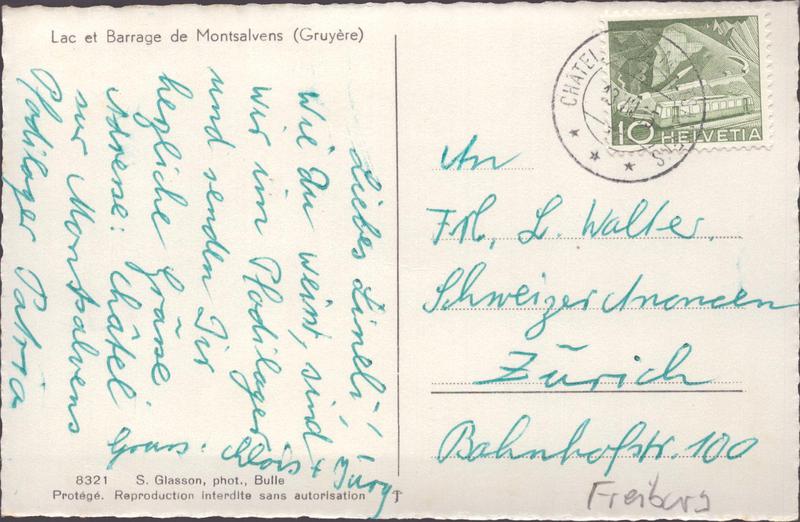 Lac et Barrage de Montsalvens (Gruyère)
Liebes Lineli!
Wie Du weisst, sind
wir im Pfadilager
und senden Dir
herzliche Grüsse
Adresse: Châtel
sur Montsalvens
Pfadilager Patria
Gruss: Alois + Jürg
8321 S. Glasson, phot., Bulle
Protégé. Reproduction interdite sans autorisation
CHÂTEL
10 HELVETIA
An
Frl. L. Walter.
Schweizer Annoncen
Zürich
Bahnhofstr. 100
Freiburg